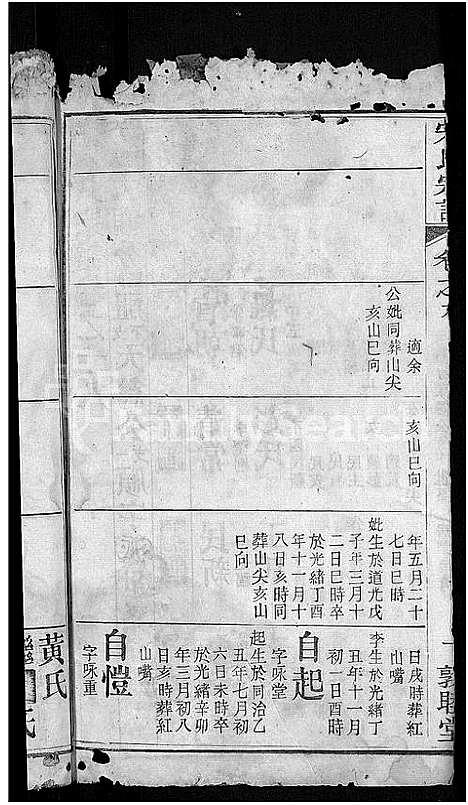 宋氏宗譜
卷之九
敦睦堂
適余
公妣同葬山尖
亥山巳向
亥山巳向
年五月二十
七日巳時
妣生於道光戊
子年三月十
二日巳時卒
於光緒丁酉
年十一月十
八日亥時同
葬山尖亥山
巳向
日戌時葬紅
山嘴
李生於光緒丁
丑年十一月
初一日酉時
自起
字咏堂
起生於同治乙
丑年七月初
六日未時卒
於光緒辛卯
年三月初八
日亥時葬紅
山嘴
自愷
字咏重
黃氏
氏
FamilySearch